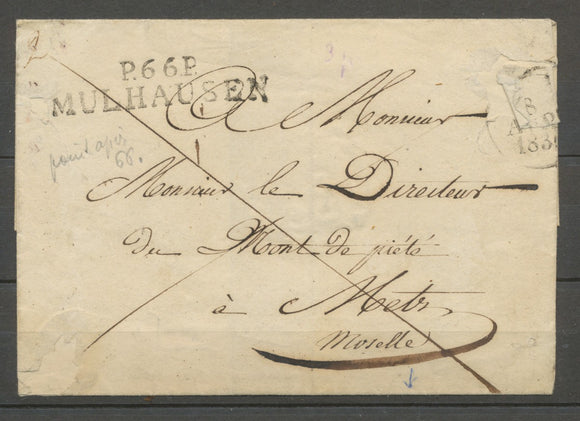 P.66.P.
MULHAUSEN
A Monsieur
8
1830
point après
66.
Monsieur le Directeur
du Mont de piété
à Metz
Moselle